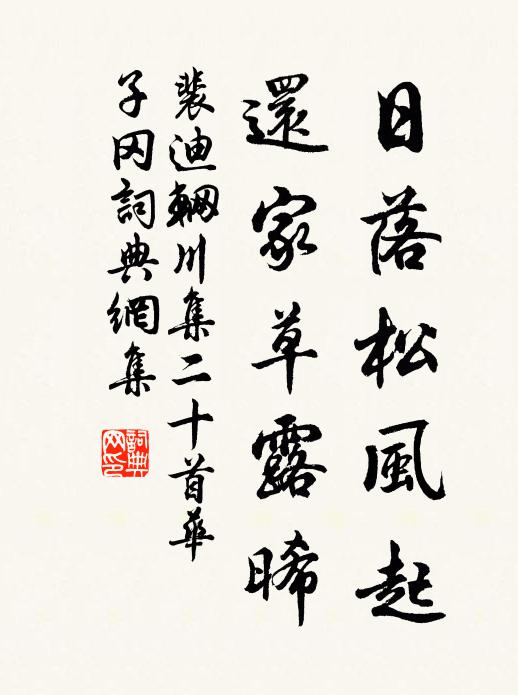 日落松風起
還家草露晞
裴迪輞川集二十首華
子冈詞典網集
詞典
网印